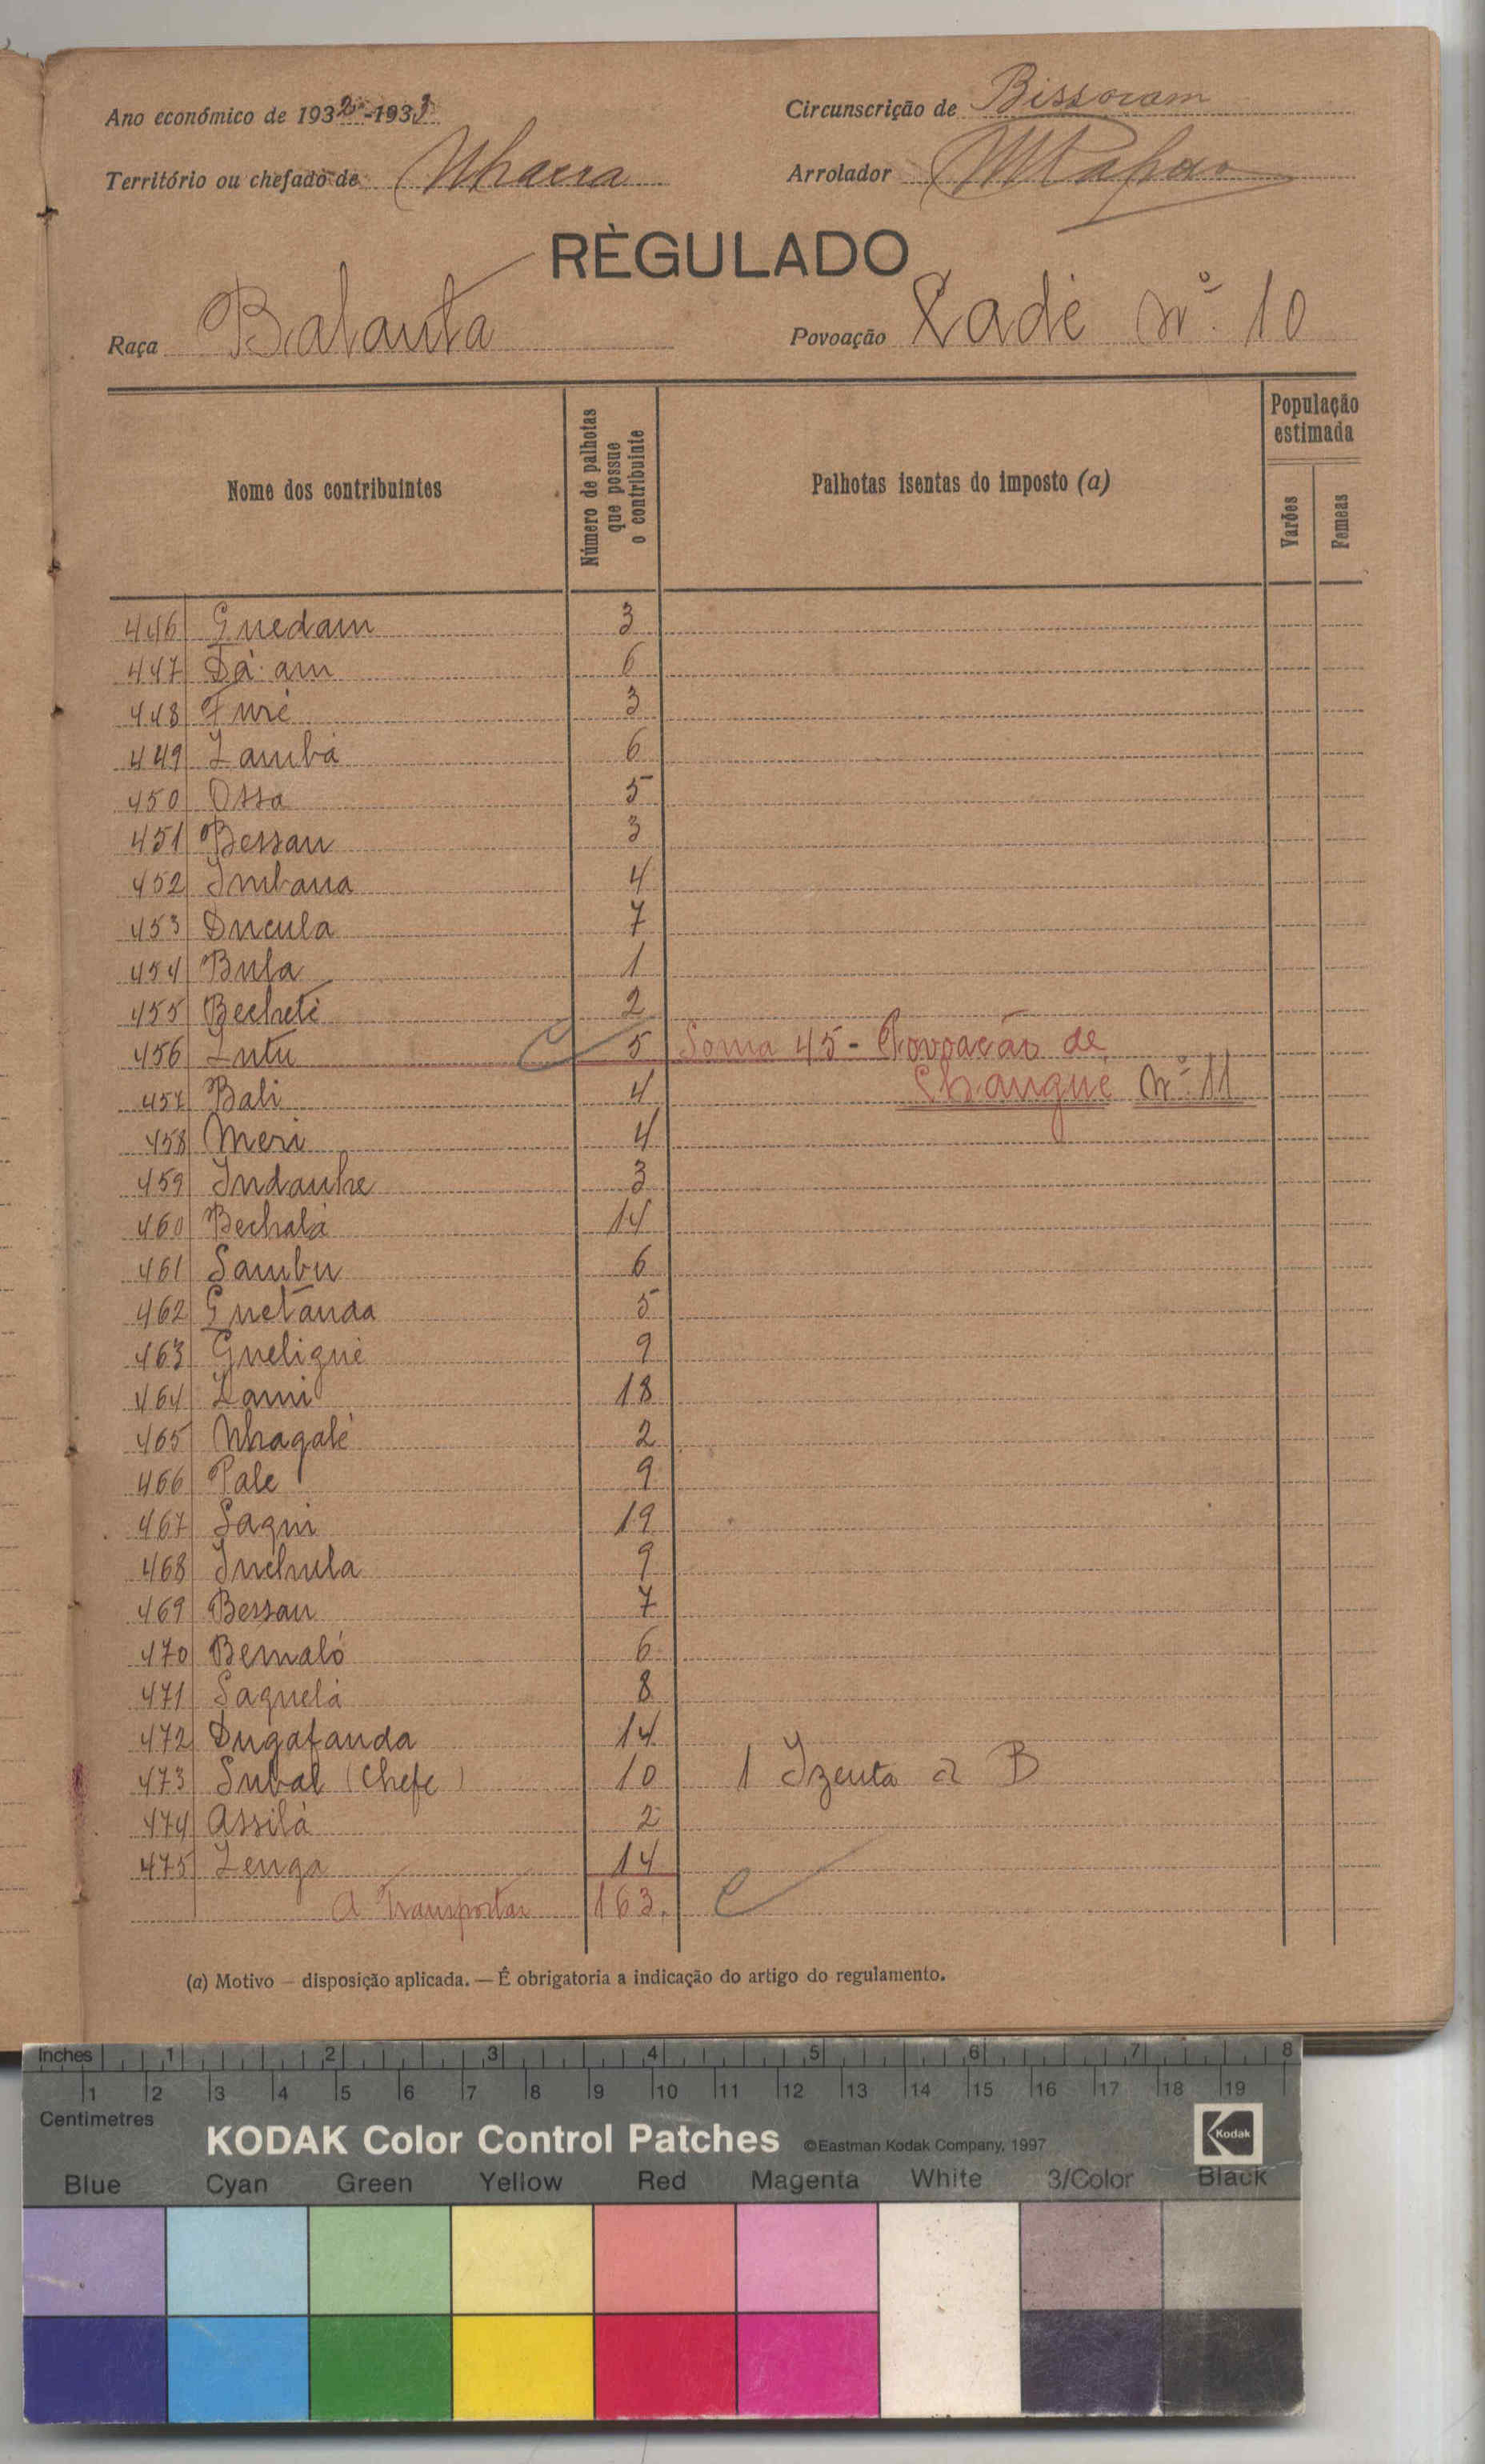 Ano económico de 1932-1933 Circunscrição de Bissoram
Território ou chefado de Nhacra Arrolador
RÈGULADO
Raça Balanta Povoação Ladé Nº 10
Nome dos contribuintes Número de palhotas que possue o contribuinte Palhotas isentas do imposto (a) População estimada
Varões Femeas
446 Guedam 3
447 Dá-am 6
448 Furé 3
449 Zambá 6
450 Ossa 5
451 Bessau 3
452 Imbana 4
453 Ducula 7
454 Bula 1
455 Becheté 2
456 Lutu 5 Soma 45 - Povoação de
457 Bali 4 Changue Nº 11
458 Meri 4
459 Indanhe 3
460 Bechalá 14
461 Sambu 6
462 Guetanda 5
463 Gueligué 9
464 Lami 18
465 Nhagalé 2
466 Pale 9
467 Saqui 19
468 Inchula 9
469 Bessau 7
470 Bemaló 6
471 Saquelá 8
472 Dugafanda 14
473 Subal (Chefe) 10 1 Izenta a B
474 Assilá 2
475 Zenga 14
A Transportar 163.
(a) Motivo — disposição aplicada. — É obrigatoria a indicação do artigo do regulamento.
Inches 1 2 3 4 5 6 7 8
1 2 3 4 5 6 7 8 9 10 11 12 13 14 15 16 17 18 19
Centimetres
KODAK Color Control Patches ©Eastman Kodak Company, 1997 Kodak
Blue Cyan Green Yellow Red Magenta White 3/Color Black